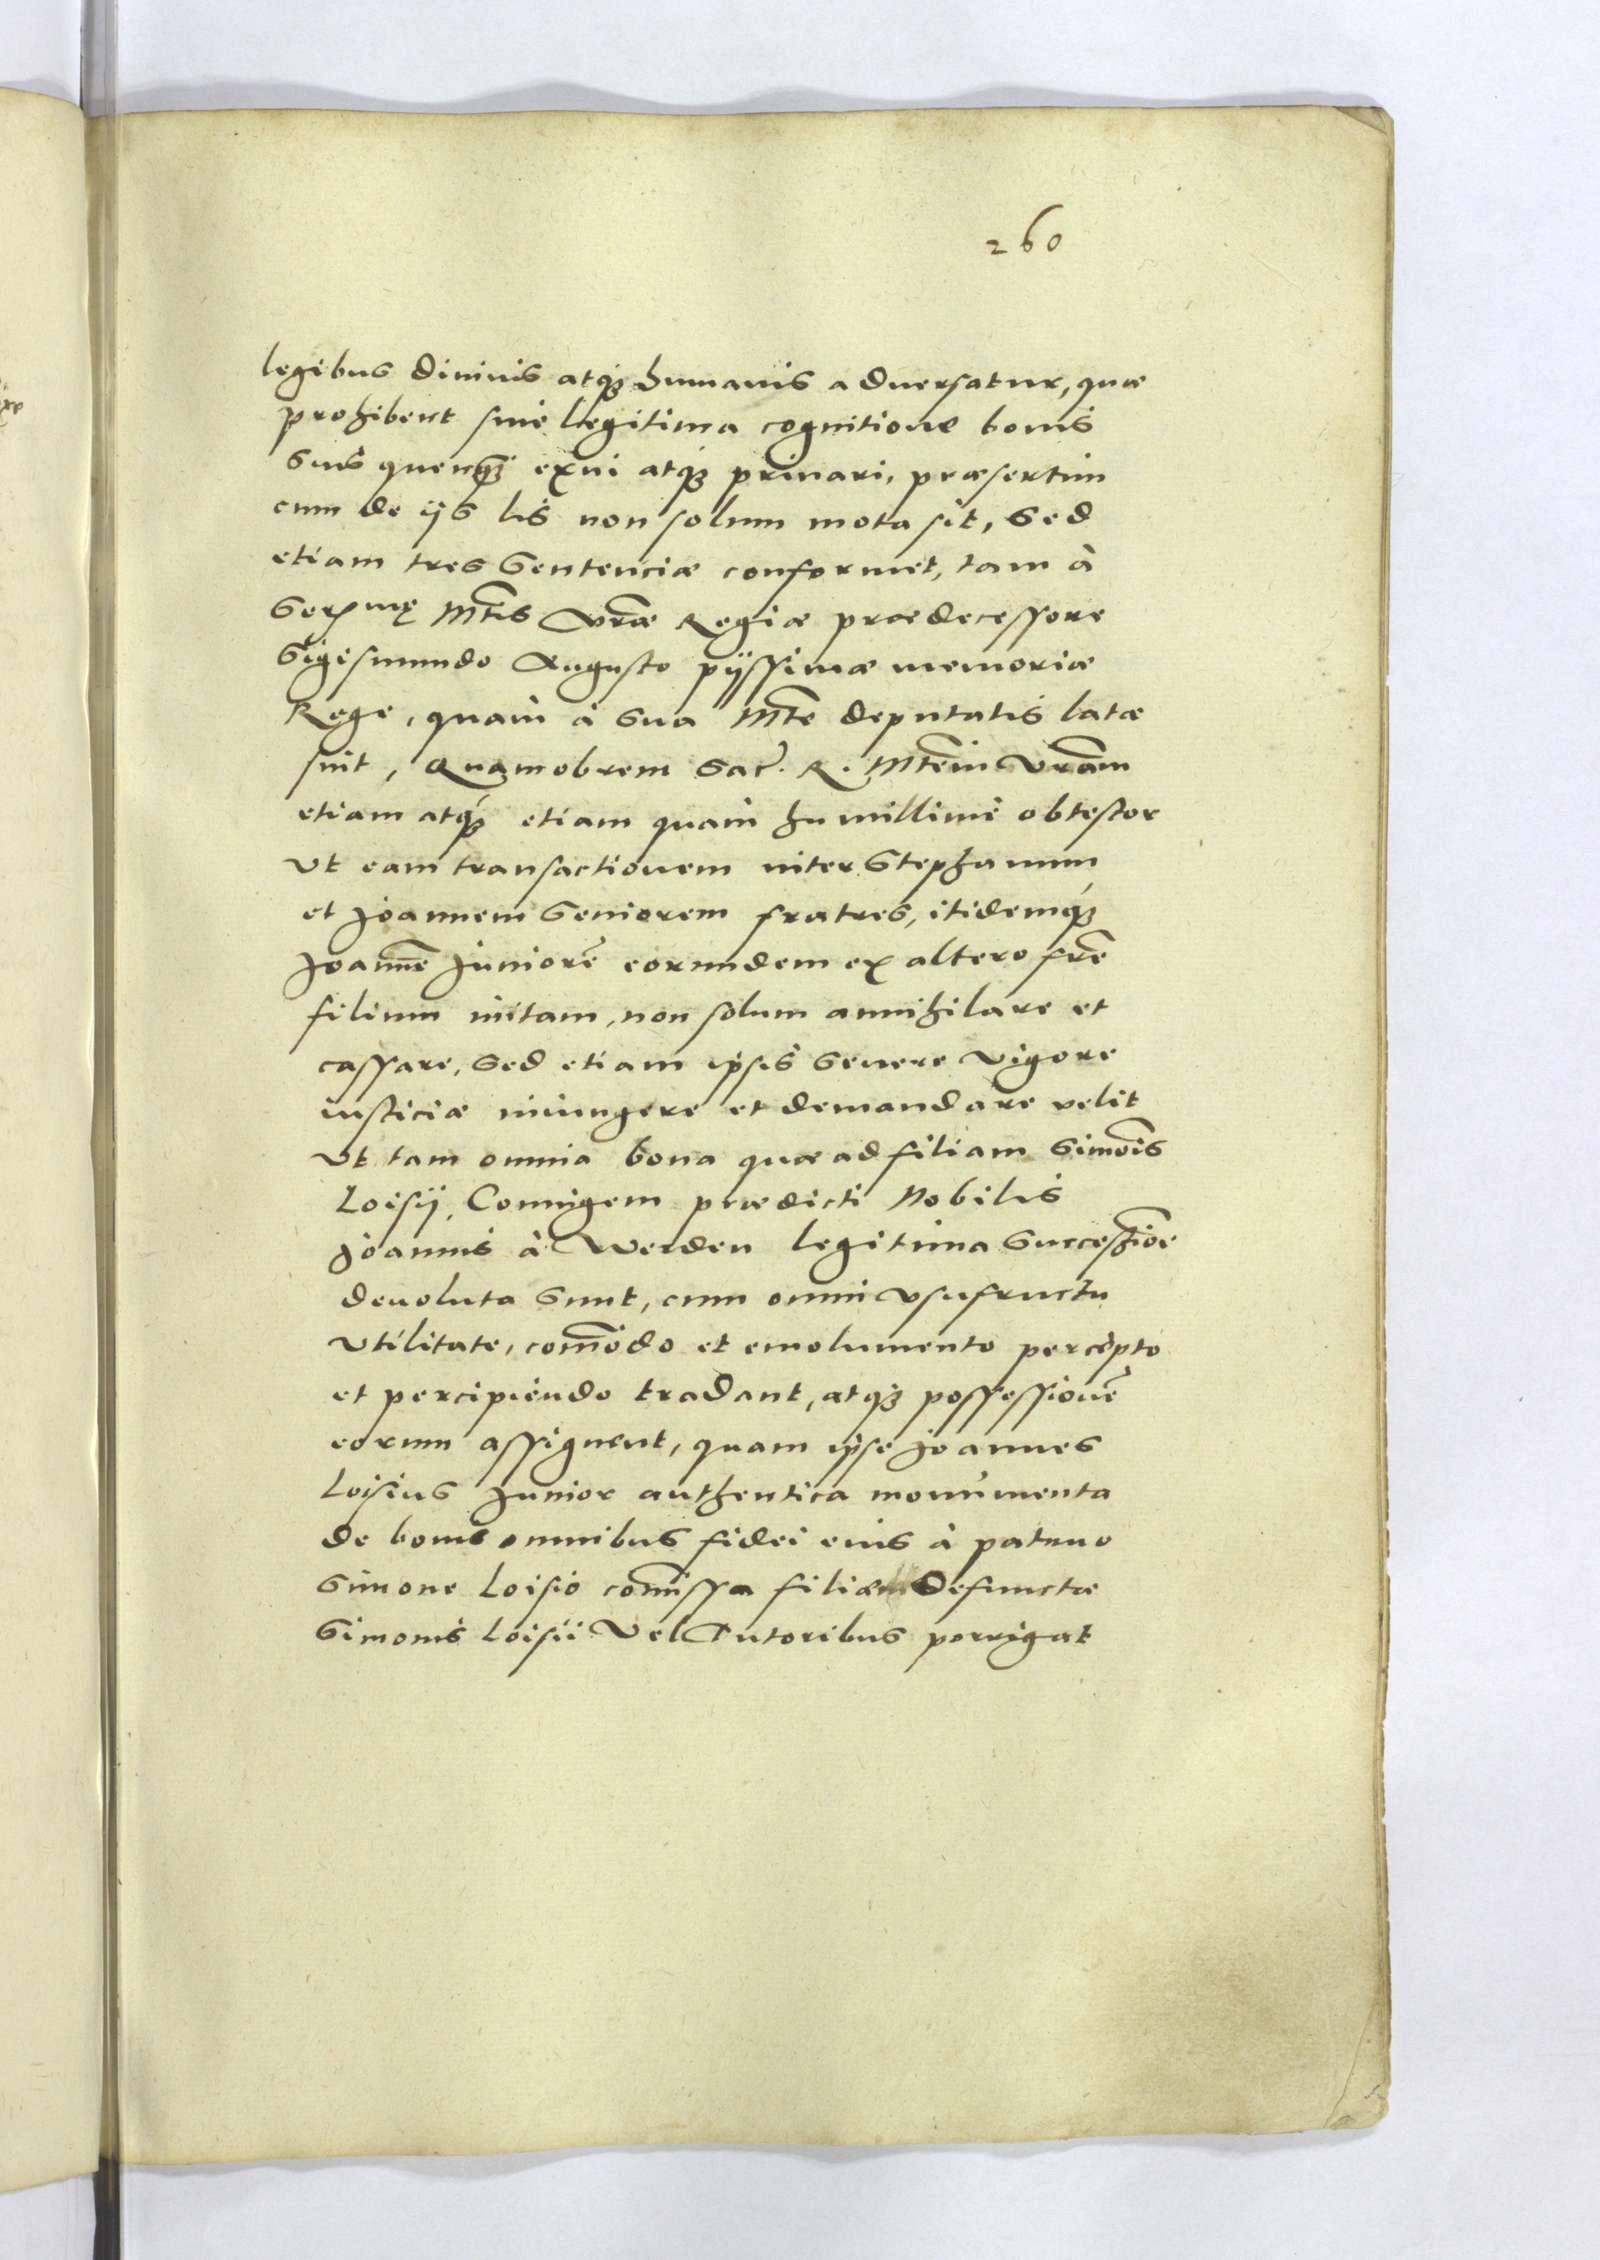 260
legibus diuinis atq3 humanis aduersatur, quæ
prohibent sinè legitima cognitione bonis
suis quenq3 exui atq3 priuari, præsertim
cum de ijs lis non solum mota sit, sed
etiam tres sentenciæ conformet, tam à
Serxmę Mtis Vræ Regiæ prædecessore
Sigismundo Augusto pijssimæ memoriæ
Rege, quam à sua Mte deputatis latæ
sint, Quamobrem Sac. R. Mtem Vram
etiam atq3 etiam quàm humillimè obtestor
Vt eam transactionem inter Stephanum
et Joannem Seniorem fratres, itidemq3
Joannē Juniorē eorundem ex altero frē
filium initam, non solum annihilare et
cassare, sed etiam ipsis seuere vigore
iusticiæ iniungere et demandare velit
Vt tam omnia bona quæ ad filiam Simōis
Loisij, Coniugem prædicti Nobilis
Joannis à Werden legitima successiōe
deuoluta sunt, cum omni vsufructu
Vtilitate, com̄odo et emolumento percepto
et percipiendo tradant, atq3 possessionē
eorum assignent, quam ipse Joannes
Loisius Junior authentica monumenta
de bonis omnibus fidei eius à patruo
Simone Loisio com̄issa filiæ defunctæ
Simonis Loisii Vel Tutoribus porrigat